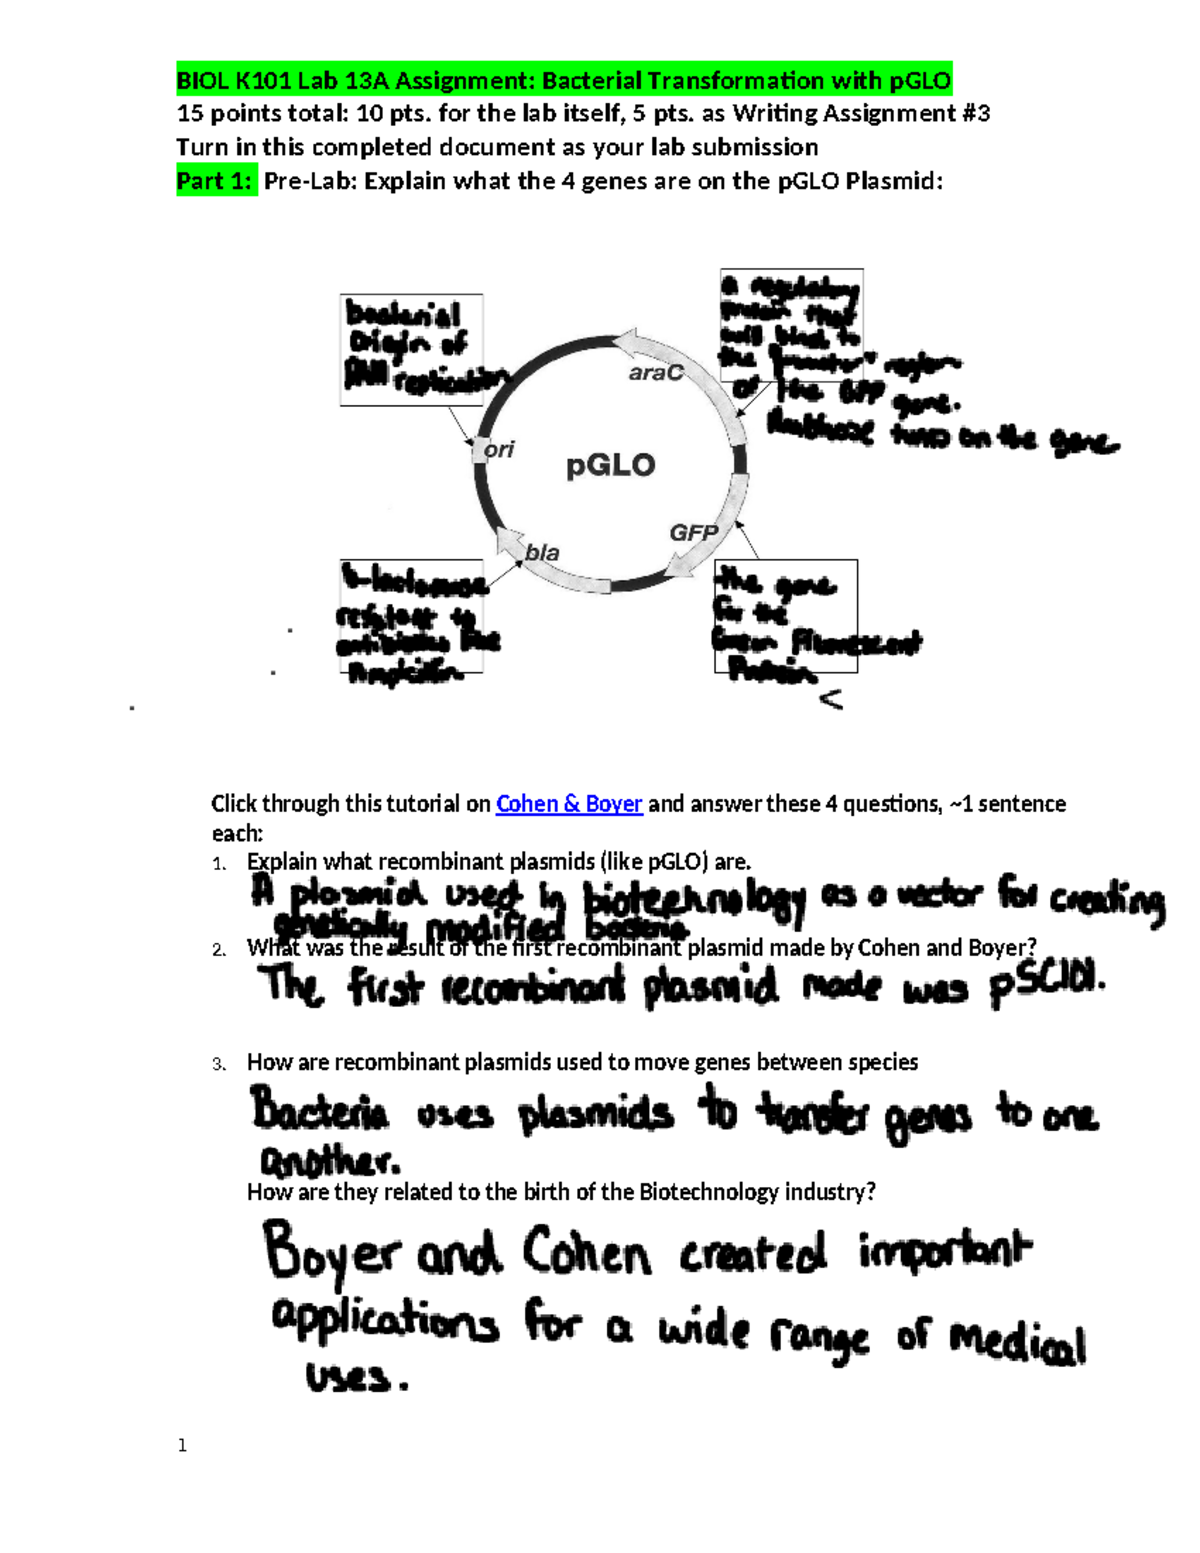 BIOL K101 Lab 13A Assignment: Bacterial Transformation with pGLO
15 points total: 10 pts. for the lab itself, 5 pts. as Writing Assignment #3
Turn in this completed document as your lab submission
Part 1: Pre-Lab: Explain what the 4 genes are on the pGLO Plasmid:
bacterial
Origin of
DNA replication
a regulatory
protein that
will bind to
the "promoter" region
of the GFP gene.
turns on the gene
araC
ori
pGLO
GFP
bla
b-lactamase
resistant to
antibiotics like
Ampicillin
the gene
for the
Green Fluorescent
Protein
<
Click through this tutorial on Cohen & Boyer and answer these 4 questions, ~1 sentence
each:
1. Explain what recombinant plasmids (like pGLO) are.
A plasmid used in biotechnology as a vector for creating
genetically modified bacteria
2. What was the result of the first recombinant plasmid made by Cohen and Boyer?
The first recombinant plasmid made was pSC101.
3. How are recombinant plasmids used to move genes between species
Bacteria uses plasmids to transfer genes to one
another.
How are they related to the birth of the Biotechnology industry?
Boyer and Cohen created important
applications for a wide range of medical
uses.
1